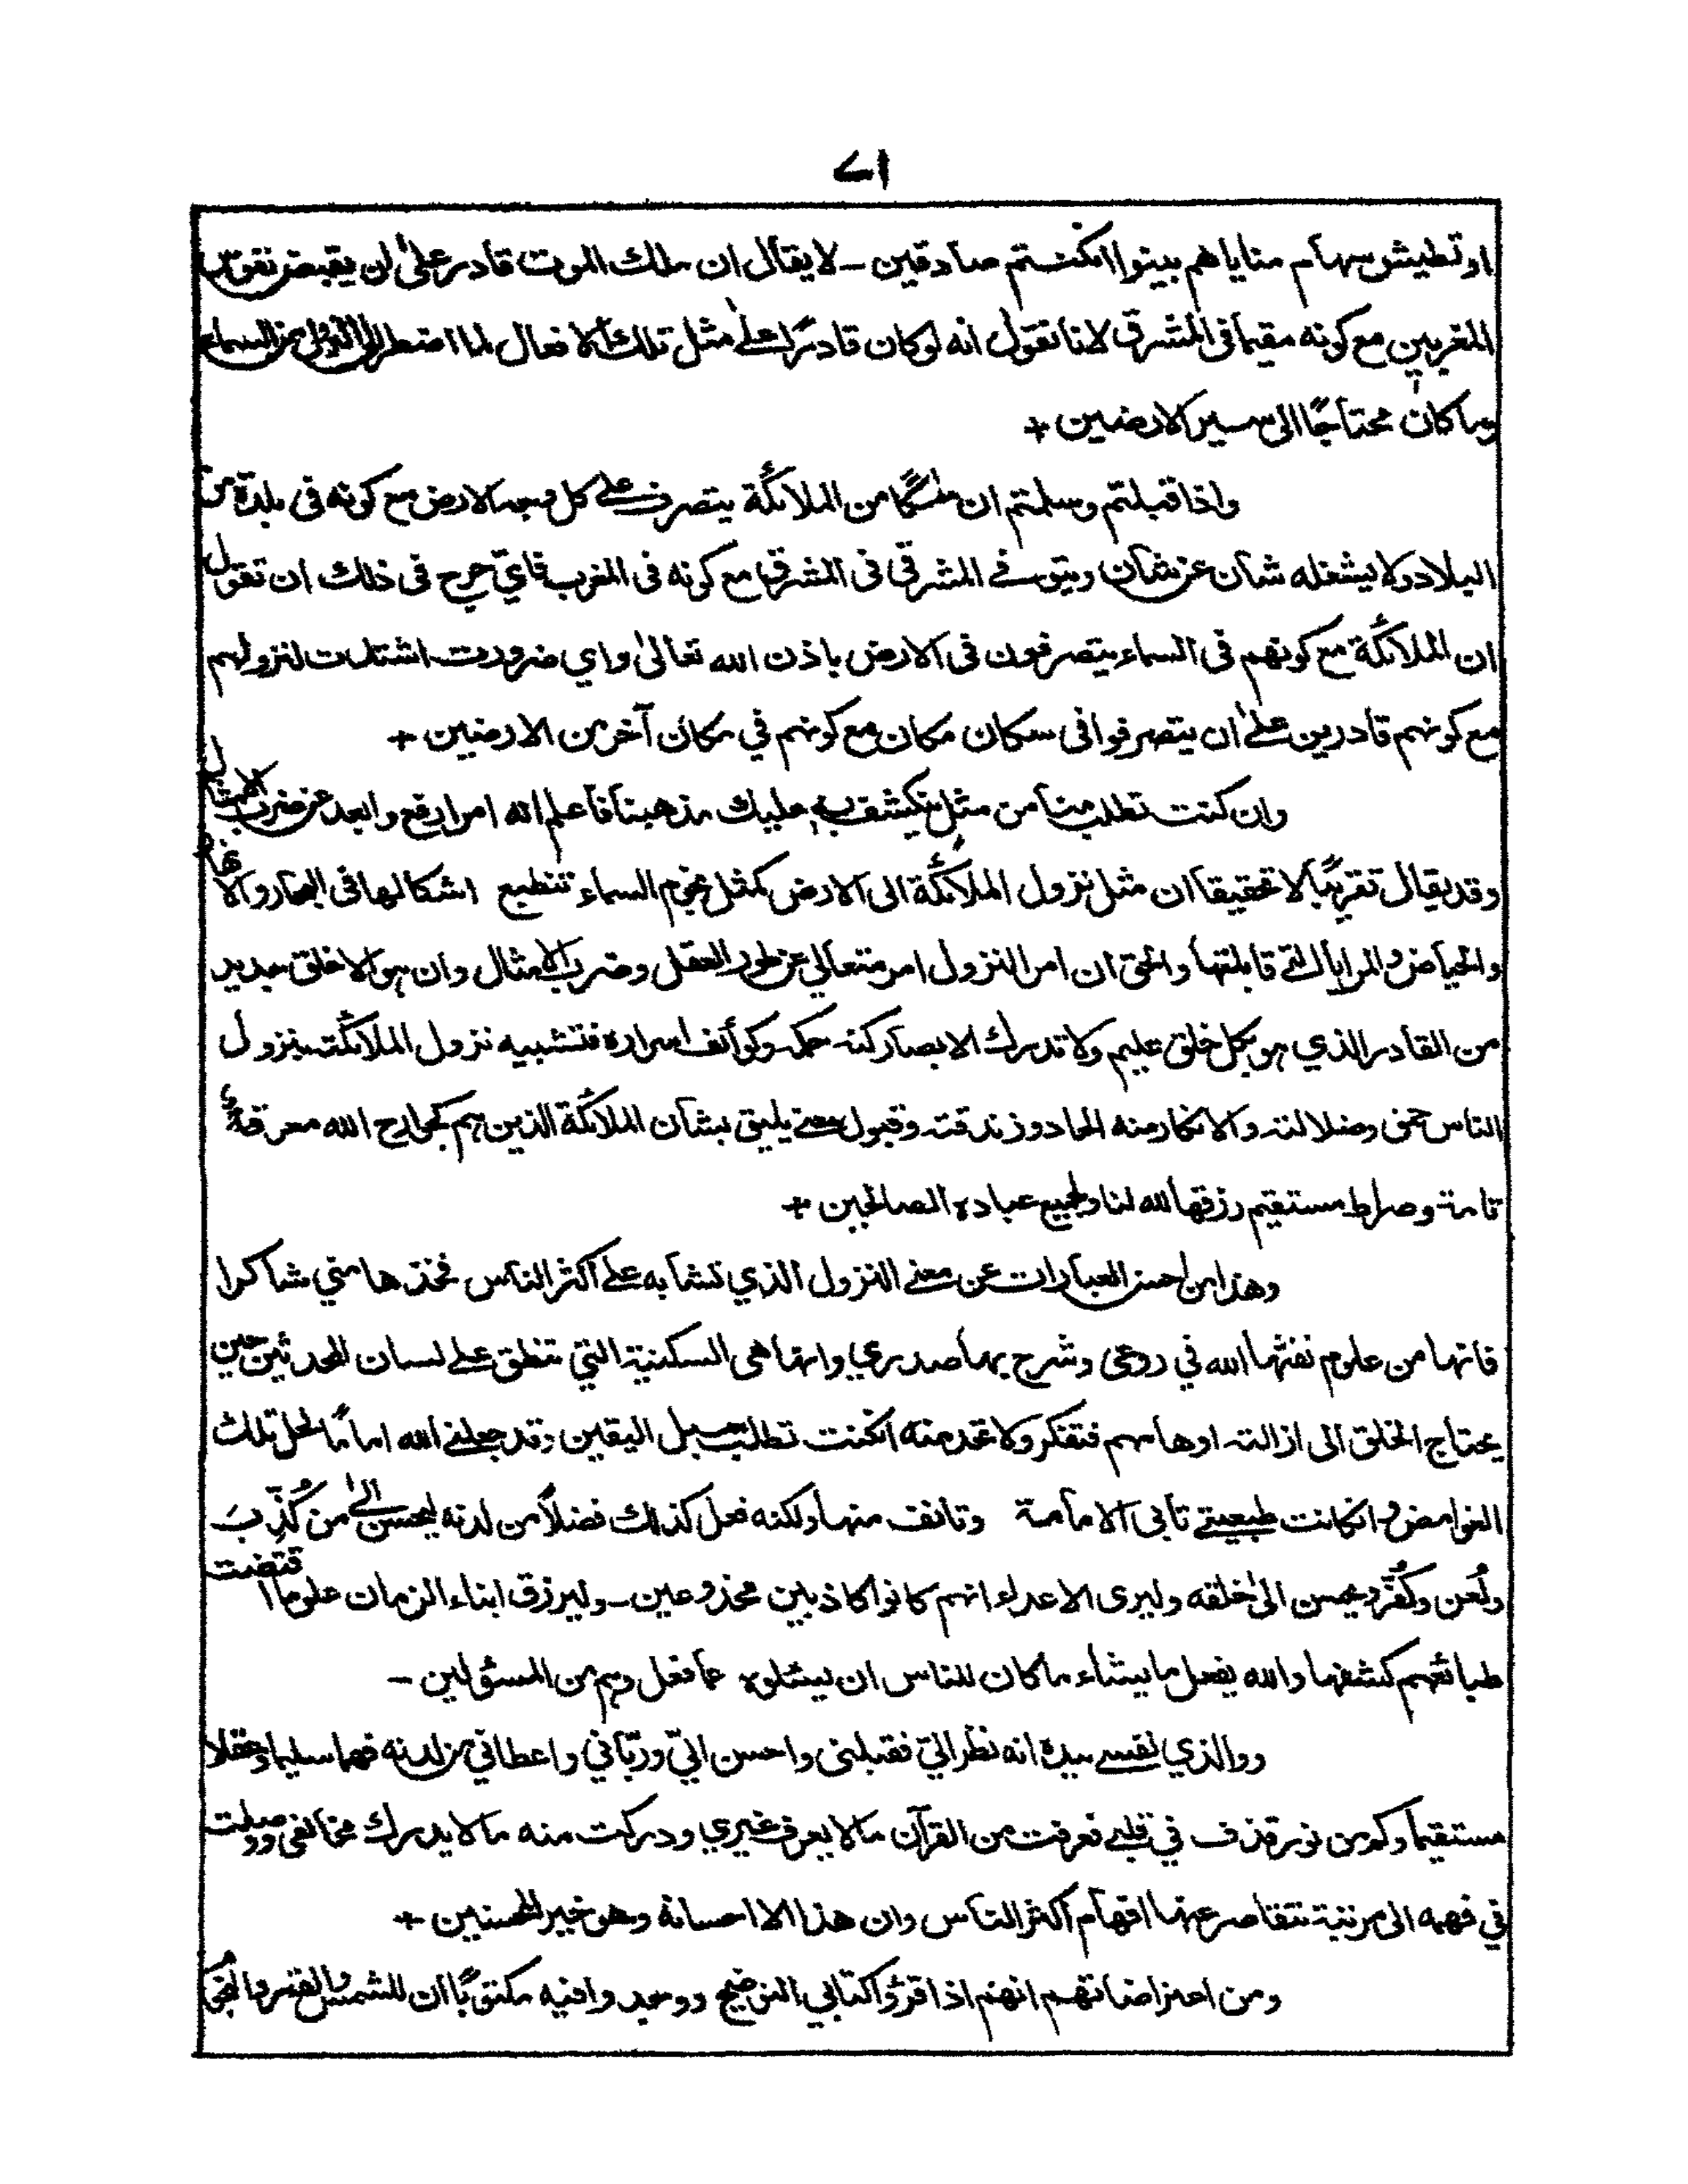 ۱۷
او تطيش سهام مناياهم بينوا ان كنتم صادقين - لا يقال ان ملك الموت قادر على ان يقبض نفوس
المغربين مع كونه مقيما فى المشرق لانا نقول انه لو كان قادرًا على مثل تلك الافعال لما اضطر الى النزول من السماء
وما كان محتاجًا الى سير الارضين +
واذا قبلتم وسلمتم ان ملكًا من الملائكة يتصرف على كل وجه الارض مع كونه فى بلدة من
البلاد ولا يشغله شأن عن شأن ويتوفى المشرقى فى المشرق مع كونه فى المغرب فاي حرج فى ذلك ان تقول
ان الملائكة مع كونهم فى السماء يتصرفون فى الارض باذن الله تعالى واي ضرورت اشتدت لنزولهم
مع كونهم قادرين على ان يتصرفوا فى سكان مكان مع كونهم في مكان آخر من الارضين +
وان كنت تطلب منا من مثل ينكشف به عليك مذهبنا فاعلم انه امر ارفع وابعد عن ضرب الامثال
وقد يقال تقريبًا لا تحقيقا ان مثل نزول الملائكة الى الارض كمثل نجوم السماء تنطبع اشكالها فى البحار والانهار
والحياض والمرايا التي قابلتها والحق ان امر النزول امر متعالي عن طور العقل وضرب الامثال وان هو الا خلق جديد
من القادر الذي هو بكل خلق عليم ولا تدرك الابصار كنه حكمه وكوائف اسراره فتشبيه نزول الملائكة بنزول
الناس حمق وضلالته والانكار منه الحاد وزندقته وقبول معنى يليق بشان الملائكة الذين هم كجوارح الله معرفة
تامة وصراط مستقيم رزقها الله لنا ولجميع عباده الصالحين +
وهذا من احسن العبارات عن معنى النزول الذي تشابه على اكثر الناس فخذها مني شاكرا
فانها من علوم نفثها الله في روعى وشرح بها صدري وانها هى السكينة التي تنطق على لسان المحدثين حين
يحتاج الخلق الى ازالته اوهامهم فتفكر ولا تحد منه ان كنت تطلب سبل اليقين وقد جعلنى الله امامًا لحل تلك
الغوامض وان كانت طبيعتي تأبى الامامة وتانف منها ولكنه فعل كذلك فضلًا من لدنه ليحسن الى من كُذِّبَ
ولُعن وكُفّر ويحسن الى خلقه وليرى الاعداء انهم كانوا كاذبين مخدوعين - وليرزق ابناء الزمان علوما اقتضت
طبائعهم كشفها والله يفعل ما يشاء ما كان للناس ان يسئلوه عما فعل وهم من المسئولين -
ووالذي نفسي بيده انه نظر اليّ فقبلنى واحسن اليّ وربّاني واعطاني من لدنه فهما سليما وعقلا
مستقيما وكم من نور قذف في قلبي فعرفت من القرآن ما لا يعرف غيري ودركت منه ما لا يدرك مخالفى ووصلت
في فهمه الى مرتبة تتقاصر عنها افهام اكثر الناس وان هذا الا احسانه وهو خير المحسنين +
ومن اعتراضاتهم انهم اذا قرؤا كتابي التوضيح ووجدوا فيه مكتوبًا ان للشمس والقمر والنجوم